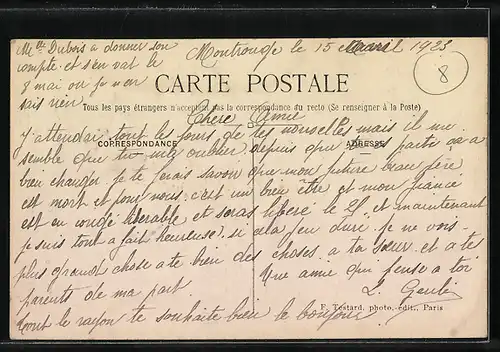 Mlle Dubois a donner son
compte et s'en vat le
8 mai ou je n'en
sais rien
Montrouge le 15 avril 1923
8
CARTE POSTALE
Tous les pays étrangers n'acceptent pas la correspondance du recto (Se renseigner à la Poste)
Chere Amie
J'attendai tout le jours de tes nouvelles mais il me
CORRESPONDANCE
ADRESSE
semble que tu m'as oublier depuis que je partie ca a
bien changer. Je te ferais savoir que mon future beau père
est mort et pour nous c'est un bien être et mon fiancé
est en congé liberable et seras libéré le 25 et maintenant
je suis tout a fait heureuse si cela peu duré. Je ne vois
plus grand chose a te bien des choses a ta sœur et a tes
parents de ma part
Une amie qui pense a toi
L.
tout le rayon te souhaite bien le bonjour
F. Testard, photo. édit., Paris